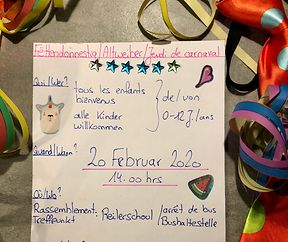 Fettendonneschdeg/Altweiber/Jeudi de carnaval
Qui/Wer?
tous les enfants
bienvenus
alle Kinder
willkommen
de/von
0-12 J./ans
Quand/Wann?
20 Februar 2020
14.00 hrs
Où/Wo?
Rassemblement:
Treffpunkt
Reilerschool
/arrêt de bus
Bushaltestelle